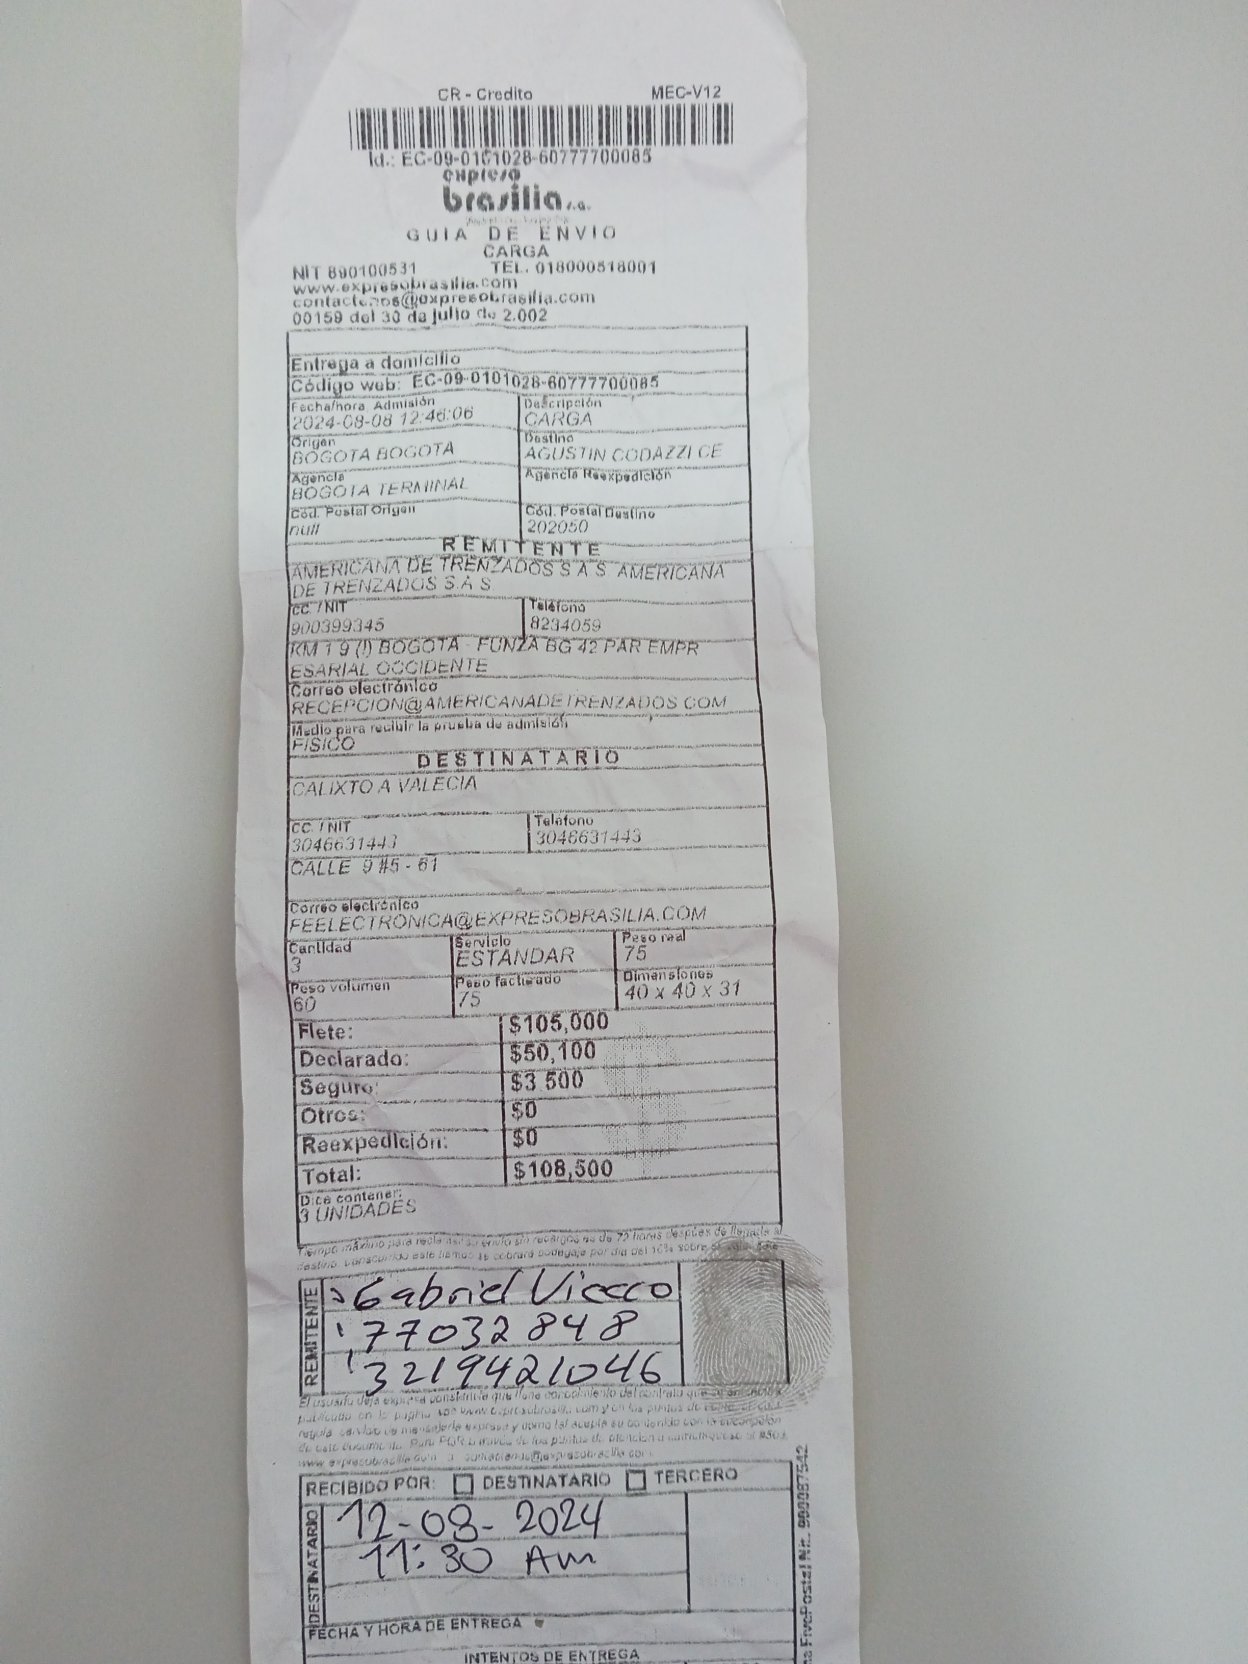 CR - Credito MEC-V12
Id.: EC-09-0101028-60777700085
expreso
brasilia s.a.
GUIA DE ENVIO
CARGA
NIT 890100531 TEL. 018000518001
www.expresobrasilia.com
contactenos@expresobrasilia.com
00159 del 30 de julio de 2.002
Entrega a domicilio
Código web: EC-09-0101028-60777700085
Fecha/hora Admisión Descripción
2024-08-08 12:46:06 CARGA
Origen Destino
BOGOTA BOGOTA AGUSTIN CODAZZI CE
Agencia Agencia Reexpedición
BOGOTA TERMINAL
Cód. Postal Origen Cód. Postal Destino
null 202050
REMITENTE
AMERICANA DE TRENZADOS S A S AMERICANA
DE TRENZADOS S A S
CC. / NIT Teléfono
900399345 8234059
KM 1 9 (!) BOGOTA - FUNZA BG 42 PAR EMPR
ESARIAL OCCIDENTE
Correo electrónico
RECEPCION@AMERICANADETRENZADOS.COM
Medio para recibir la prueba de admisión
FISICO
DESTINATARIO
CALIXTO A VALECIA
CC. / NIT Teléfono
3046631443 3046631443
CALLE 9 #5 - 61
Correo electrónico
FEELECTRONICA@EXPRESOBRASILIA.COM
Cantidad Servicio Peso real
3 ESTANDAR 75
Peso volumen Peso facturado Dimensiones
60 75 40 x 40 x 31
Flete: $105,000
Declarado: $50,100
Seguro: $3,500
Otros: $0
Reexpedición: $0
Total: $108,500
Dice contener:
3 UNIDADES
Tiempo máximo para reclamar su envío sin recargos es de 72 horas después de llegada a
destino, transcurrido este tiempo se cobrará bodegaje por día del 10% sobre el
REMITENTE
Gabriel Viecco
77032848
3219421046
El usuario deja expresa constancia que tiene conocimiento del contrato que
publicado en la pagina web www.expresobrasilia.com y en los puntos de
regula servicio de mensajería expresa y como tal acepta su contenido con la suscripción
de este documento. Para PQR a través de los puntos de atención o comuníquese al
www.expresobrasilia.com o contactenos@expresobrasilia.com
RECIBIDO POR: DESTINATARIO TERCERO
DESTINATARIO
12-08-2024
11:30 Am
FECHA Y HORA DE ENTREGA
INTENTOS DE ENTREGA
FivePostal Nit. 900087542